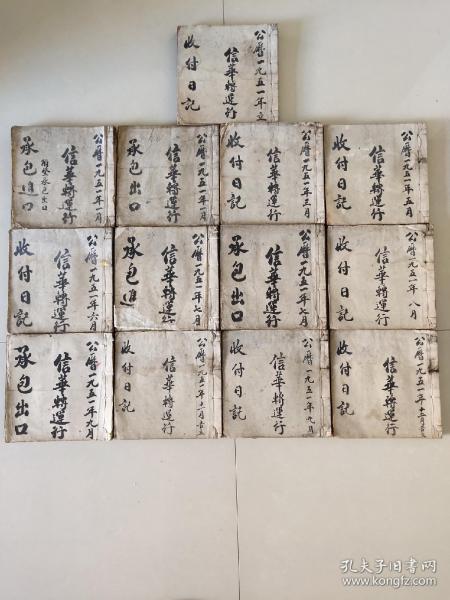 公曆一九五一年立
信華轉運行
收付日記
公曆一九五一年一月
信華轉運行
附登承包出口
承包進口
公曆一九五一年一月
信華轉運行
承包出口
公曆一九五一年三月
信華轉運行
收付日記
公曆一九五一年五月
信華轉運行
收付日記
公曆一九五一年六月
信華轉運行
收付日記
公曆一九五一年七月
信華轉運行
承包進
公曆一九五一年七月
信華轉運行
承包出口
公曆一九五一年八月
信華轉運行
收付日記
公曆一九五一年九月
信華轉運行
承包出口
公曆一九五一年十一月
信華轉運行
收付日記
公曆一九五一年九月
信華轉運行
收付日記
公曆一九五一年十二月
信華轉運行
收付日記
孔夫子旧书网
www.kongfz.com